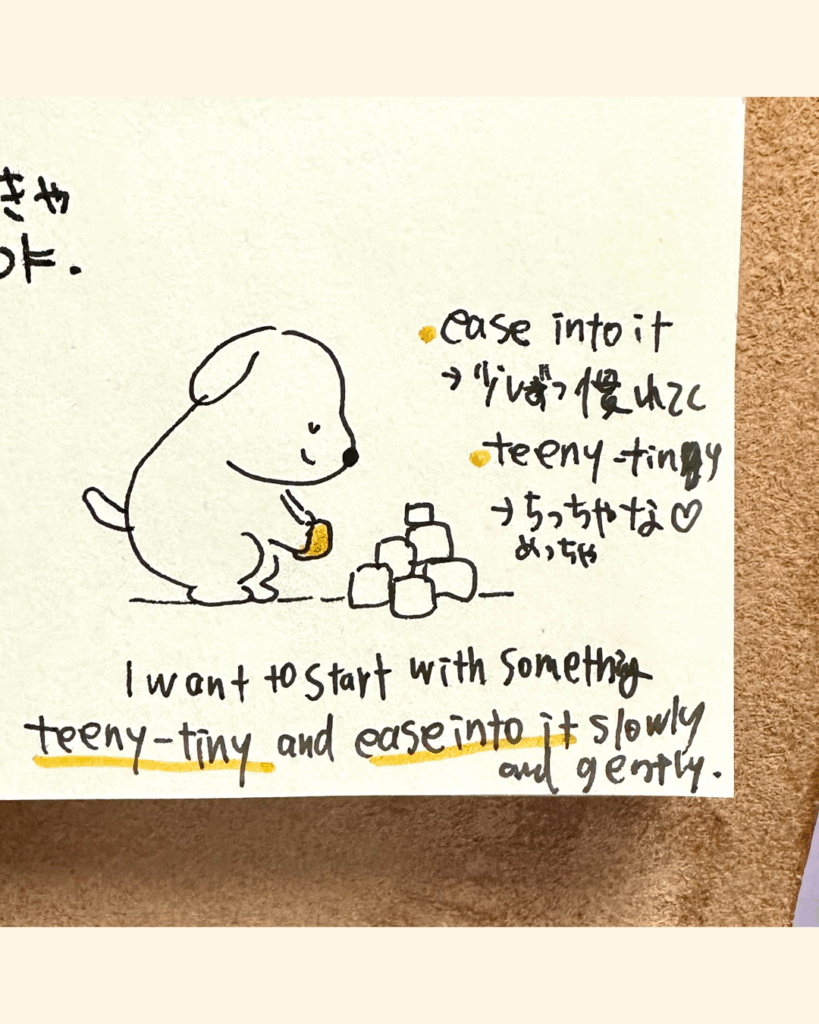 きゃ
ease into it
→ 少しずつ慣れてく
teeny-tiny
→ ちっちゃな♡
めっちゃ
I want to start with something
teeny-tiny and ease into it slowly
and gently.